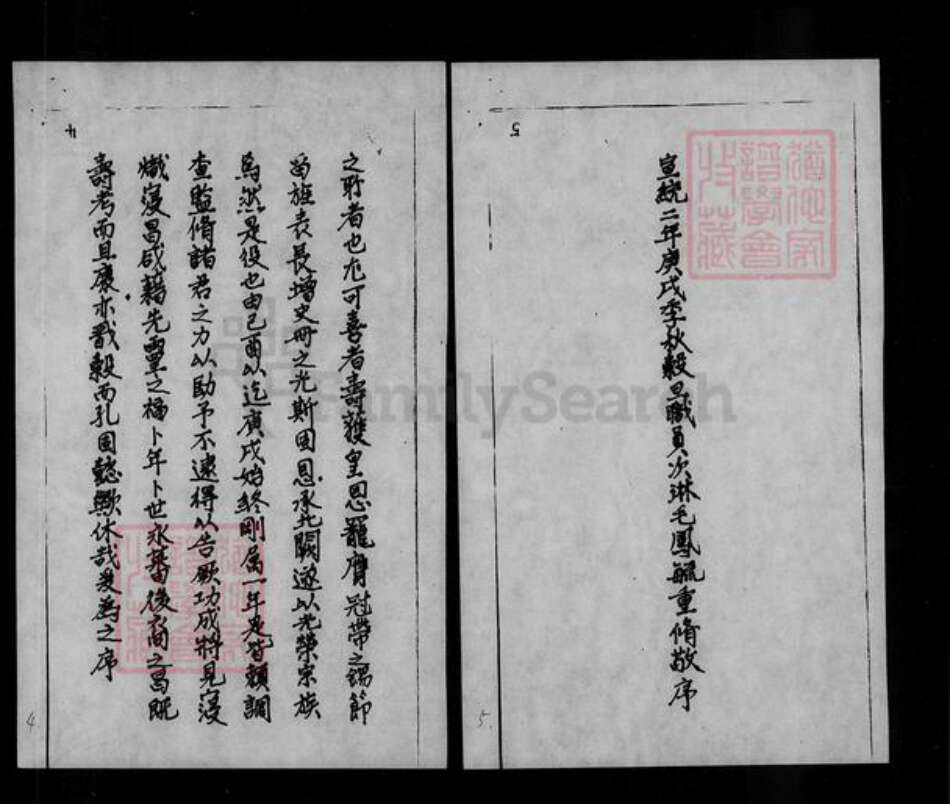 4
之貯者也尤可喜者壽獲皇恩寵膺冠帶之錫節
苗旌表長增史冊之光斯固恩承北闕遂以光榮宗族
焉然是役也由己酉以迄庚戌始終剛屆一年是皆賴調
查監脩諸君之力以助予不逮得以告厥功成將見寖
熾寖昌咸藉先靈之福卜年卜世永蕃後裔之昌既
壽考而且康亦戩穀而孔固懿歟休哉爰為之序
4
5
宣統二年庚戌季秋穀旦職員次淋毛鳳毓重脩敬序
5
FamilySearch